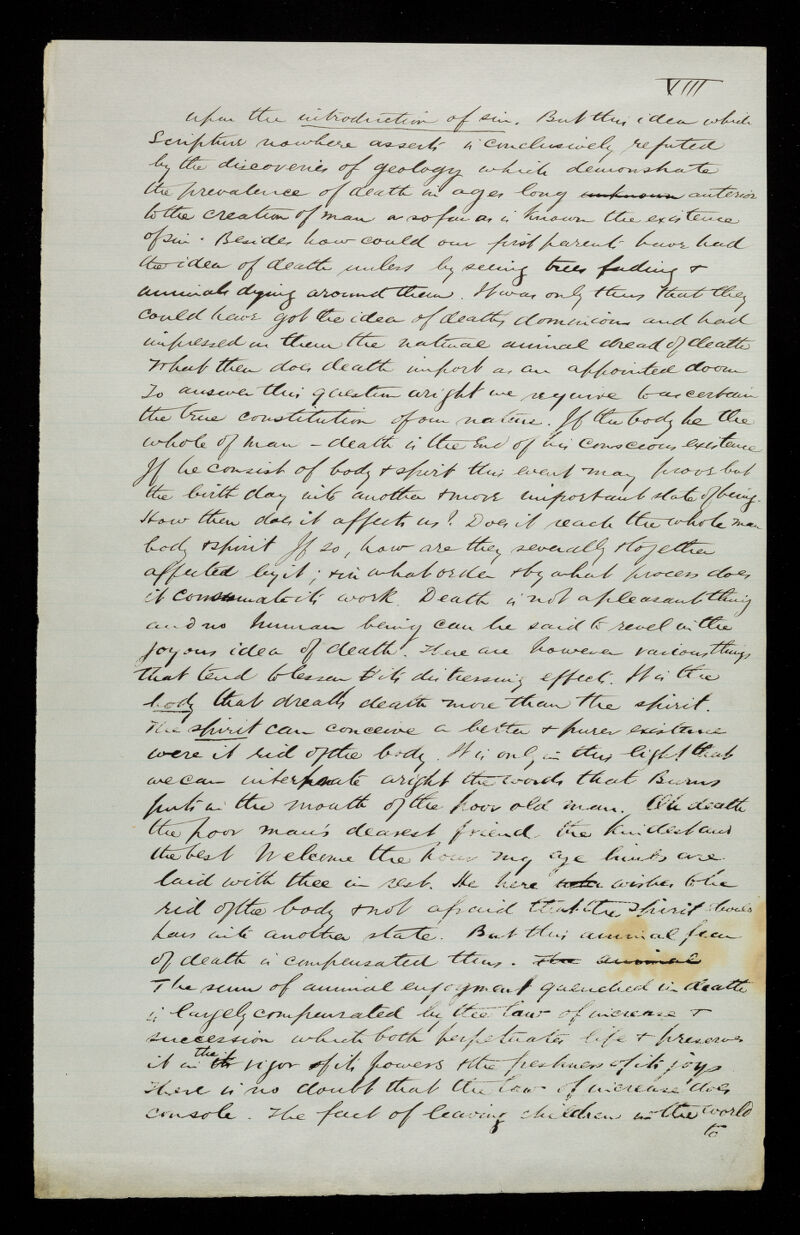 VIII
upon the introduction of sin. But this idea which
Scripture nowhere asserts is conclusively refuted
by the discoveries of geology which demonstrate
the prevalence of death in ages long unknown anterior
to the creation of man or so far as is known the existence
of sin. Besides how could our first parents have had
the idea of death unless by seeing trees fading &
animals dying around them. It was only thus that they
could have got the idea of deaths dominions and had
impressed in them the natural animal dread of death
What then does death import as an appointed doom
To answer this question aright we require to ascertain
the true constitution of our nature. If the body be the
whole of man – death is the End of his conscious existence
If he consist of body & spirit this event may prove but
the birth day into another & more important state of being.
How then does it affects us? Does it reach the whole man
body & spirit If so, how are they severally & together
affected by it; & in what order & by what process does
it consumate its work. Death is not a pleasant thing
and no human being can be said to revel in the
joyous idea of death. There are however various things
that tend to lessen its distressing effect. It is the
body that dreads death more than the spirit.
The spirit can conceive a better & purer existence
were it rid of the body. It is only in this light that
we can interprate aright the words that Burns
puts in the mouth of the poor old man. Oh death
the poor man's dearest friend the kindest and
the best Welcome the hour my age limbs are
laid with thee in rest. He here wishes to be
rid of the body & not afraid that the spirit should
pass into another state. But this animal fear
of death is compensated thus. The animal
The sum of animal enjoyment quenched in death
is largely compensated by the law of increase &
succession which both perpetuates life & preserves
it in the vigor of its powers & the freshness of its joys
There is no doubt that the law of increase does
console. The fact of leaving children in the world
to